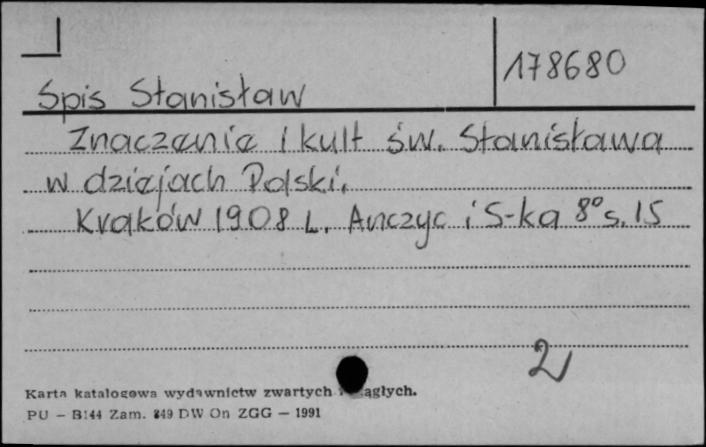 178680
Spis Stanisław
Znaczenie i kult św. Stanisława
w dziejach Polski.
Kraków 1908 L. Anczyc i S-ka 8° s. 15
2
Karta katalogowa wydawnictw zwartych ągłych.
PU — B144 Zam. 849 DW On ZGG — 1991